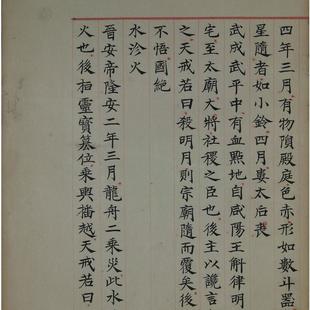 四年三月有物隕殿庭色赤形如數斗器
星隨者如小鈴四月婁太后喪
武成武平中有血點地自咸陽王斛律明
宅至太廟大將社稷之臣也後主以讒言
之天戒若曰殺明月則宗廟隨而覆矣後
不悟國絕
水沴火
晉安帝隆安二年三月龍舟二乘災此水
火也後桓靈寶篡位乘輿播越天戒若曰